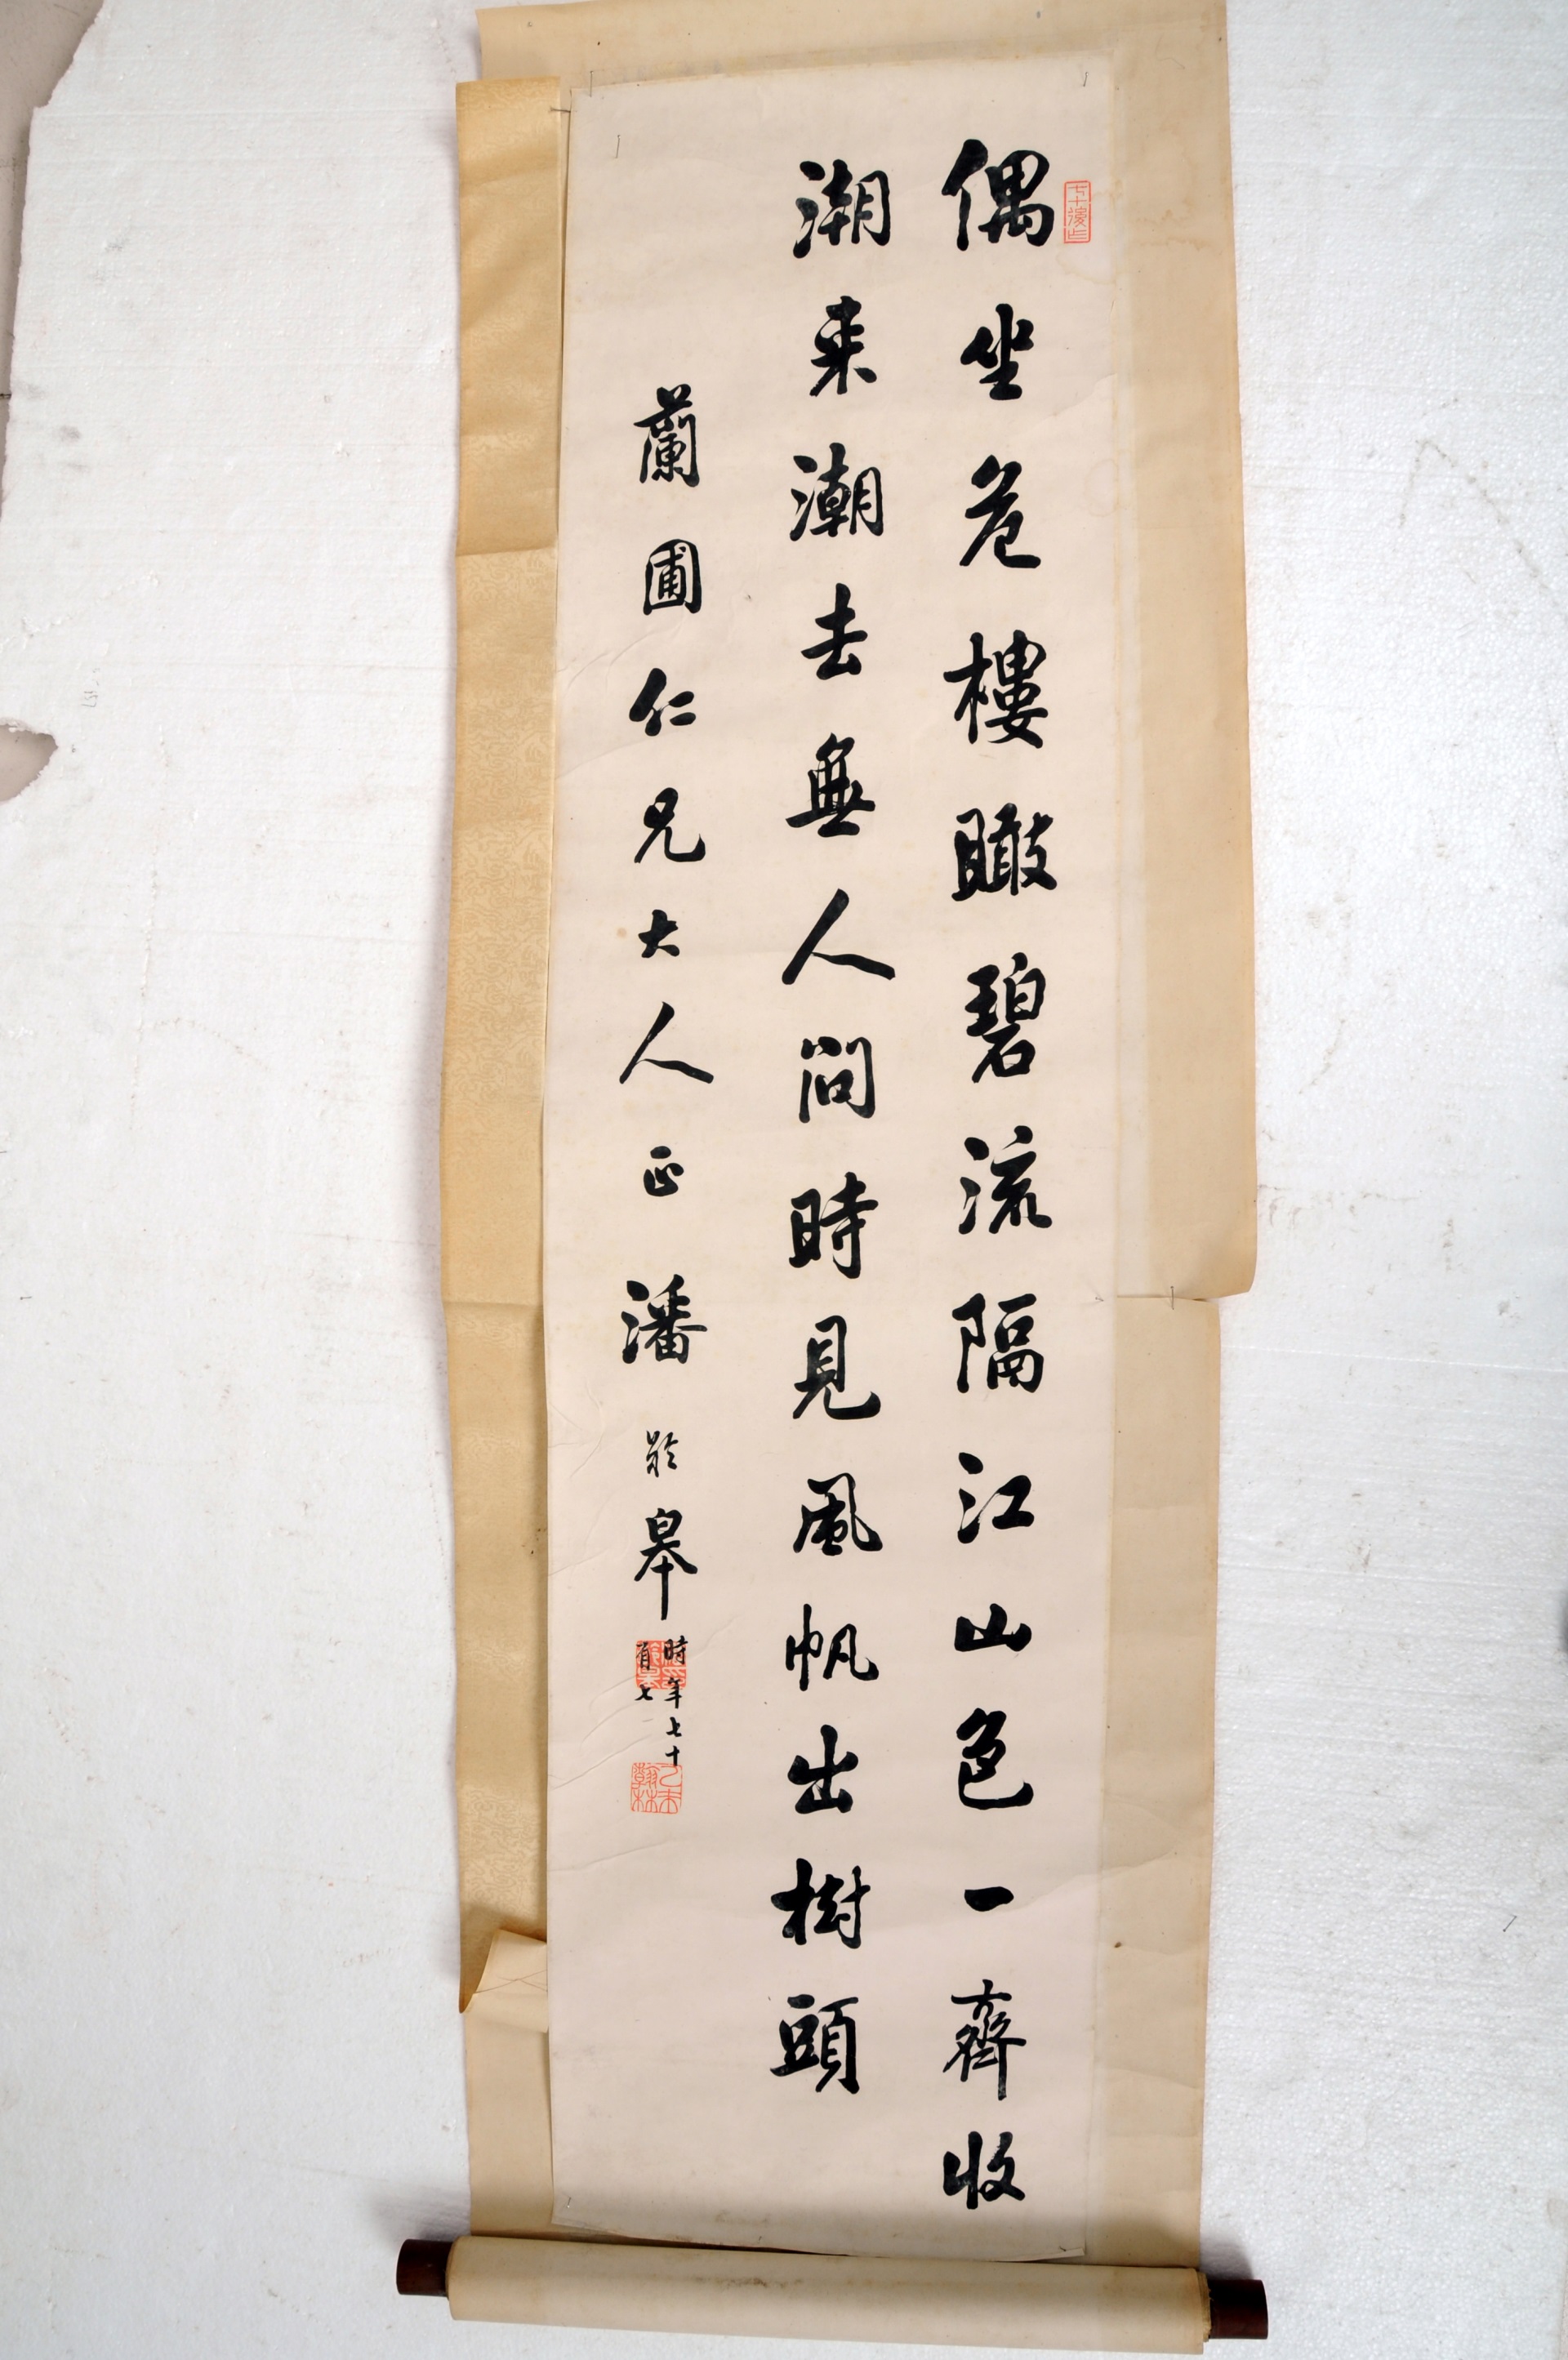 偶坐危樓瞰碧流隔江山色一齊收
潮来潮去無人問時見風帆出樹頭
蘭圃仁兄大人正 潘齡皋
時年七十
有七
七十後作
乙未
翰林